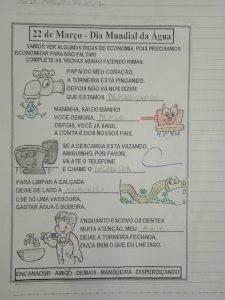 22 de Março - Dia Mundial da Água
VAMOS VER ALGUMAS DICAS DE ECONOMIA, POIS PRECISAMOS
ECONOMIZAR PARA NÃO FALTAR!
COMPLETE AS TROVAS ABAIXO FAZENDO RIMAS:
PAPAI DO MEU CORAÇÃO,
A TORNEIRA ESTÁ PINGANDO.
DEPOIS NÃO VÁ NOS DIZER
QUE ESTAMOS DESPERDIÇANDO
MANINHA, SAI DO BANHO!
VOCÊ DEMORA, DEMAIS
DEPOIS, VOCÊ JÁ SABE,
A CONTA É DOS NOSSOS PAIS.
SE A DESCARGA ESTÁ VAZANDO,
AMIGUINHO, POR FAVOR,
VÁ ATÉ O TELEFONE
E CHAME O ENCANADOR
PARA LIMPAR A CALÇADA
DEIXE DE LADO A MANGUEIRA
USE SÓ UMA VASSOURA,
GASTAR ÁGUA É BOBEIRA.
ENQUANTO ESCOVO OS DENTES
MUITA ATENÇÃO, MEU AMIGO
DEIXE A TORNEIRA FECHADA,
OUÇA BEM O QUE EU LHE DIGO.
ENCANADOR - AMIGO - DEMAIS - MANGUEIRA - DISPERDIÇANDO